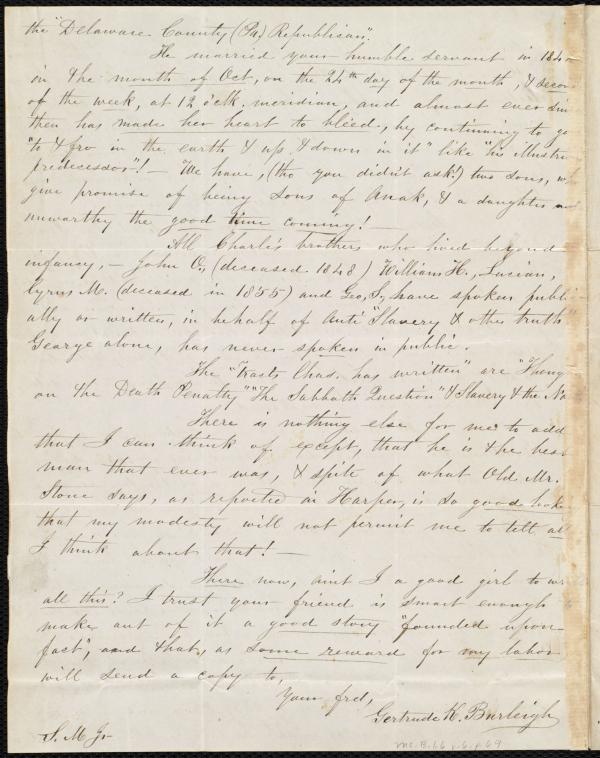 the "Delaware County (Pa.) Republican".
He married your humble servant in 184
in the month of Oct, on the 24th day of the month, & secon
of the week, at 12 o'clk. meridian, and almost ever sin
then has made her heart to bleed, by continuing to go
"to & fro in the earth & up & down in it" like "his illustri
predecessor"! — We have, (tho you didn't ask!) two sons, wh
give promise of being sons of Anak, & a daughter not
unworthy the good time coming! —
All Charles brothers who lived beyond
infancy, — John O., (deceased 1848) William H., Lucian,
Cyrus M. (deceased in 1855) and Geo, S., have spoken public
ally or written, in behalf of Anti "Slavery & other truth"
George alone, has never spoken in public.
The "Tracts Chas. has written" are "Thoug
on the Death Penalty" "The Sabbath Question" & Slavery & the No
There is nothing else for me to add
that I can think of except, that he is the bes
man that ever was, & spite of what Old Mr.
Stone says, as reported in Harper, is so good look
that my modesty will not permit me to tell all
I think about that! —
There now, aint I a good girl to wr
all this? I trust your friend is smart enough to
make out of it a good story "founded upon
fact", and that, as some reward for my labor
will send a copy to,
Your frd,
Gertrude K. Burleigh
S. M Jr